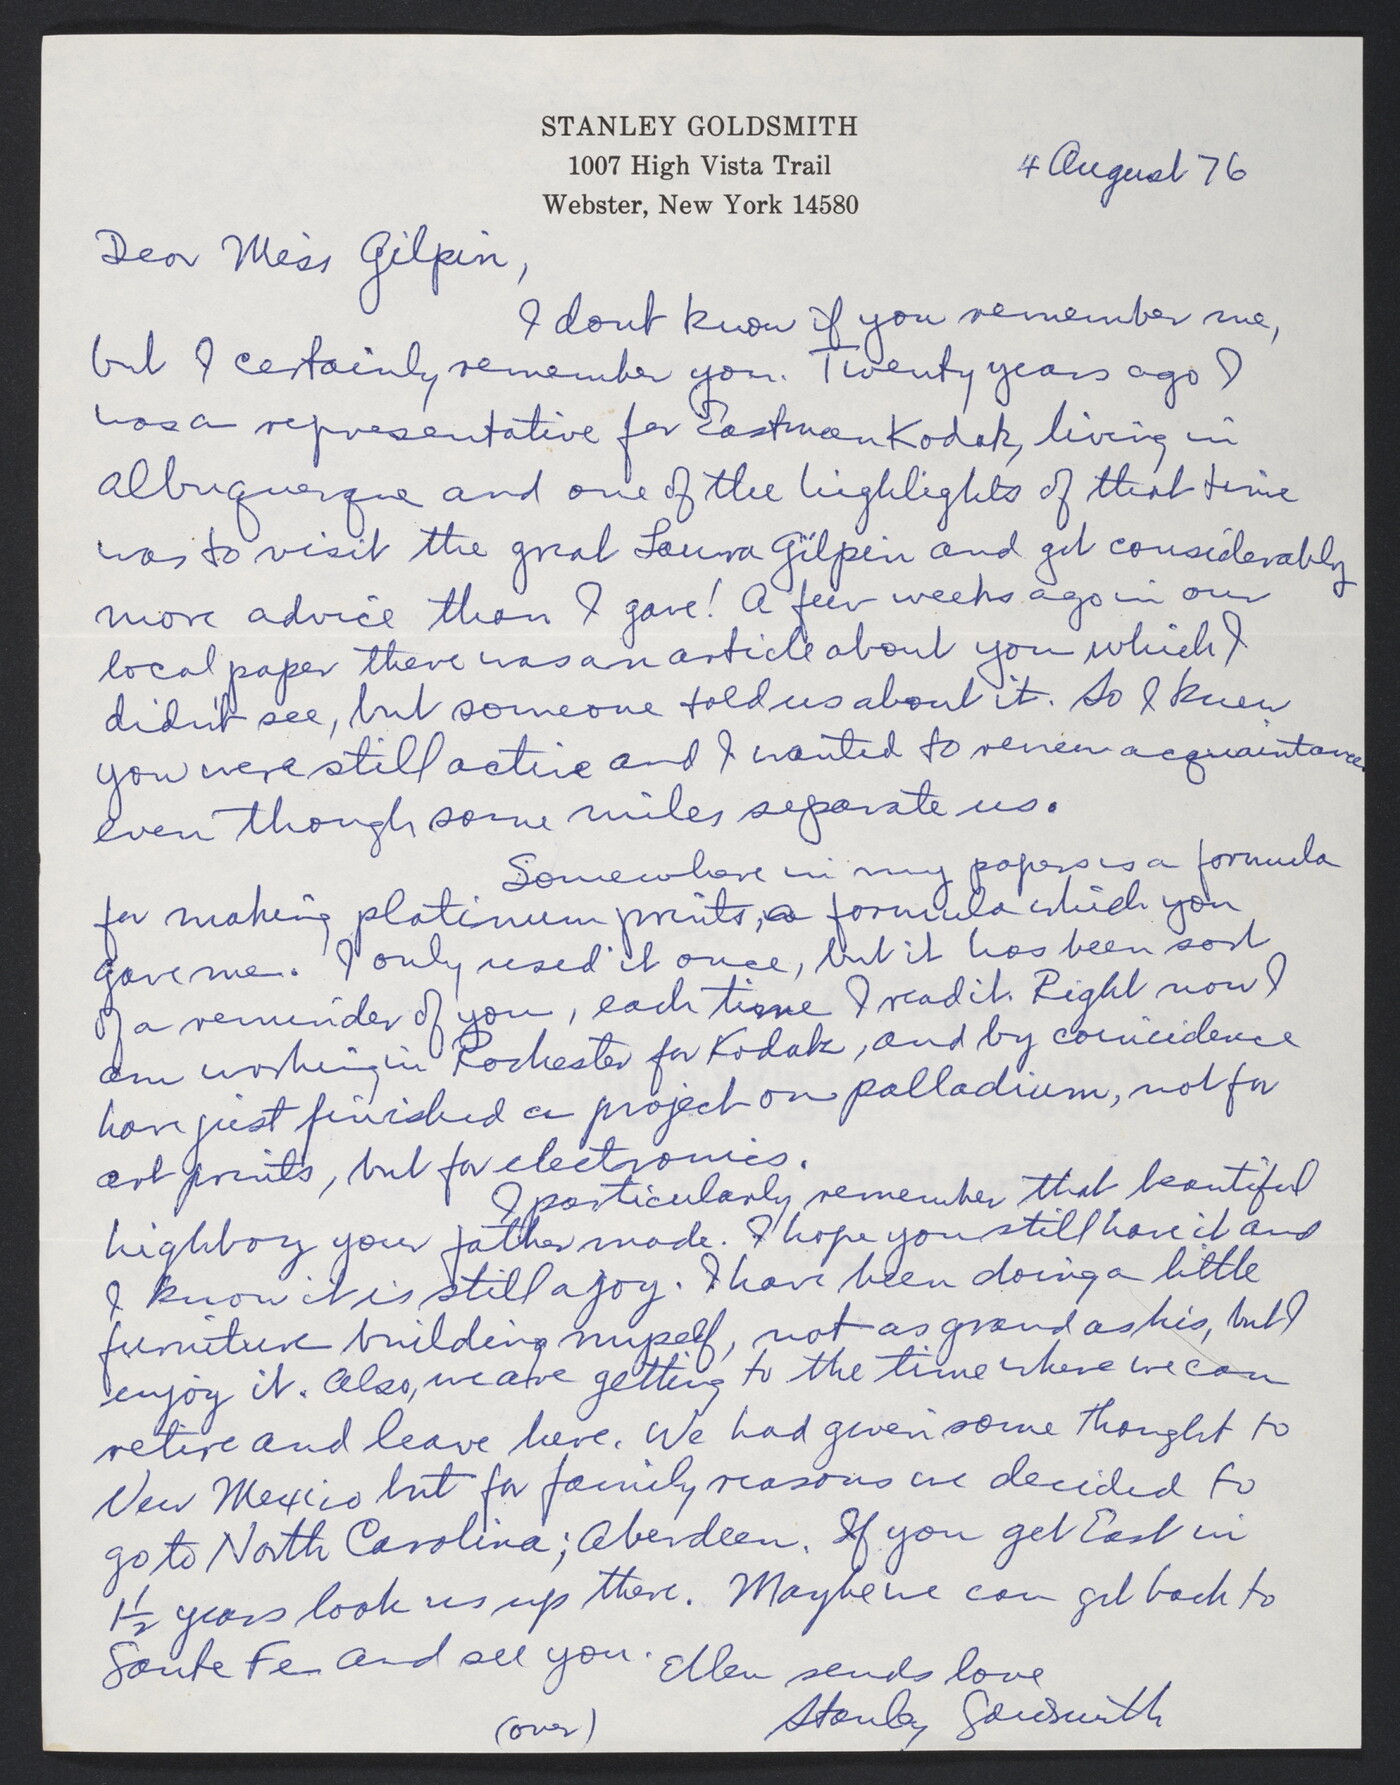 STANLEY GOLDSMITH
1007 High Vista Trail
Webster, New York 14580
4 August 76
Dear Miss Gilpin,
I dont know if you remember me,
but I certainly remember you. Twenty years ago I
was a representative for Eastman Kodak, living in
Albuquerque and one of the highlights of that time
was to visit the great Laura Gilpin and get considerably
more advice than I gave! A few weeks ago in our
local paper there was an article about you which I
didn't see, but someone told us about it. So I knew
you were still active and I wanted to renew acquaintance
even though some miles separate us.
Somewhere in my papers is a formula
for making platinum prints, a formula which you
gave me. I only used it once, but it has been sort
of a reminder of you, each time I read it. Right now I
am working in Rochester for Kodak, and by coincidence
have just finished a project on palladium, not for
art prints, but for electronics.
I particularly remember that beautiful
highboy your father made. I hope you still have it and
I know it is still a joy. I have been doing a little
furniture building myself, not as grand as his, but I
enjoy it. Also, we are getting to the time where we can
retire and leave here. We had given some thought to
New Mexico but for family reasons we decided to
go to North Carolina; Aberdeen. If you get East in
1½ years look us up there. Maybe we can get back to
Sante Fe and see you. Ellen sends love
Stanley Goldsmith
(over)